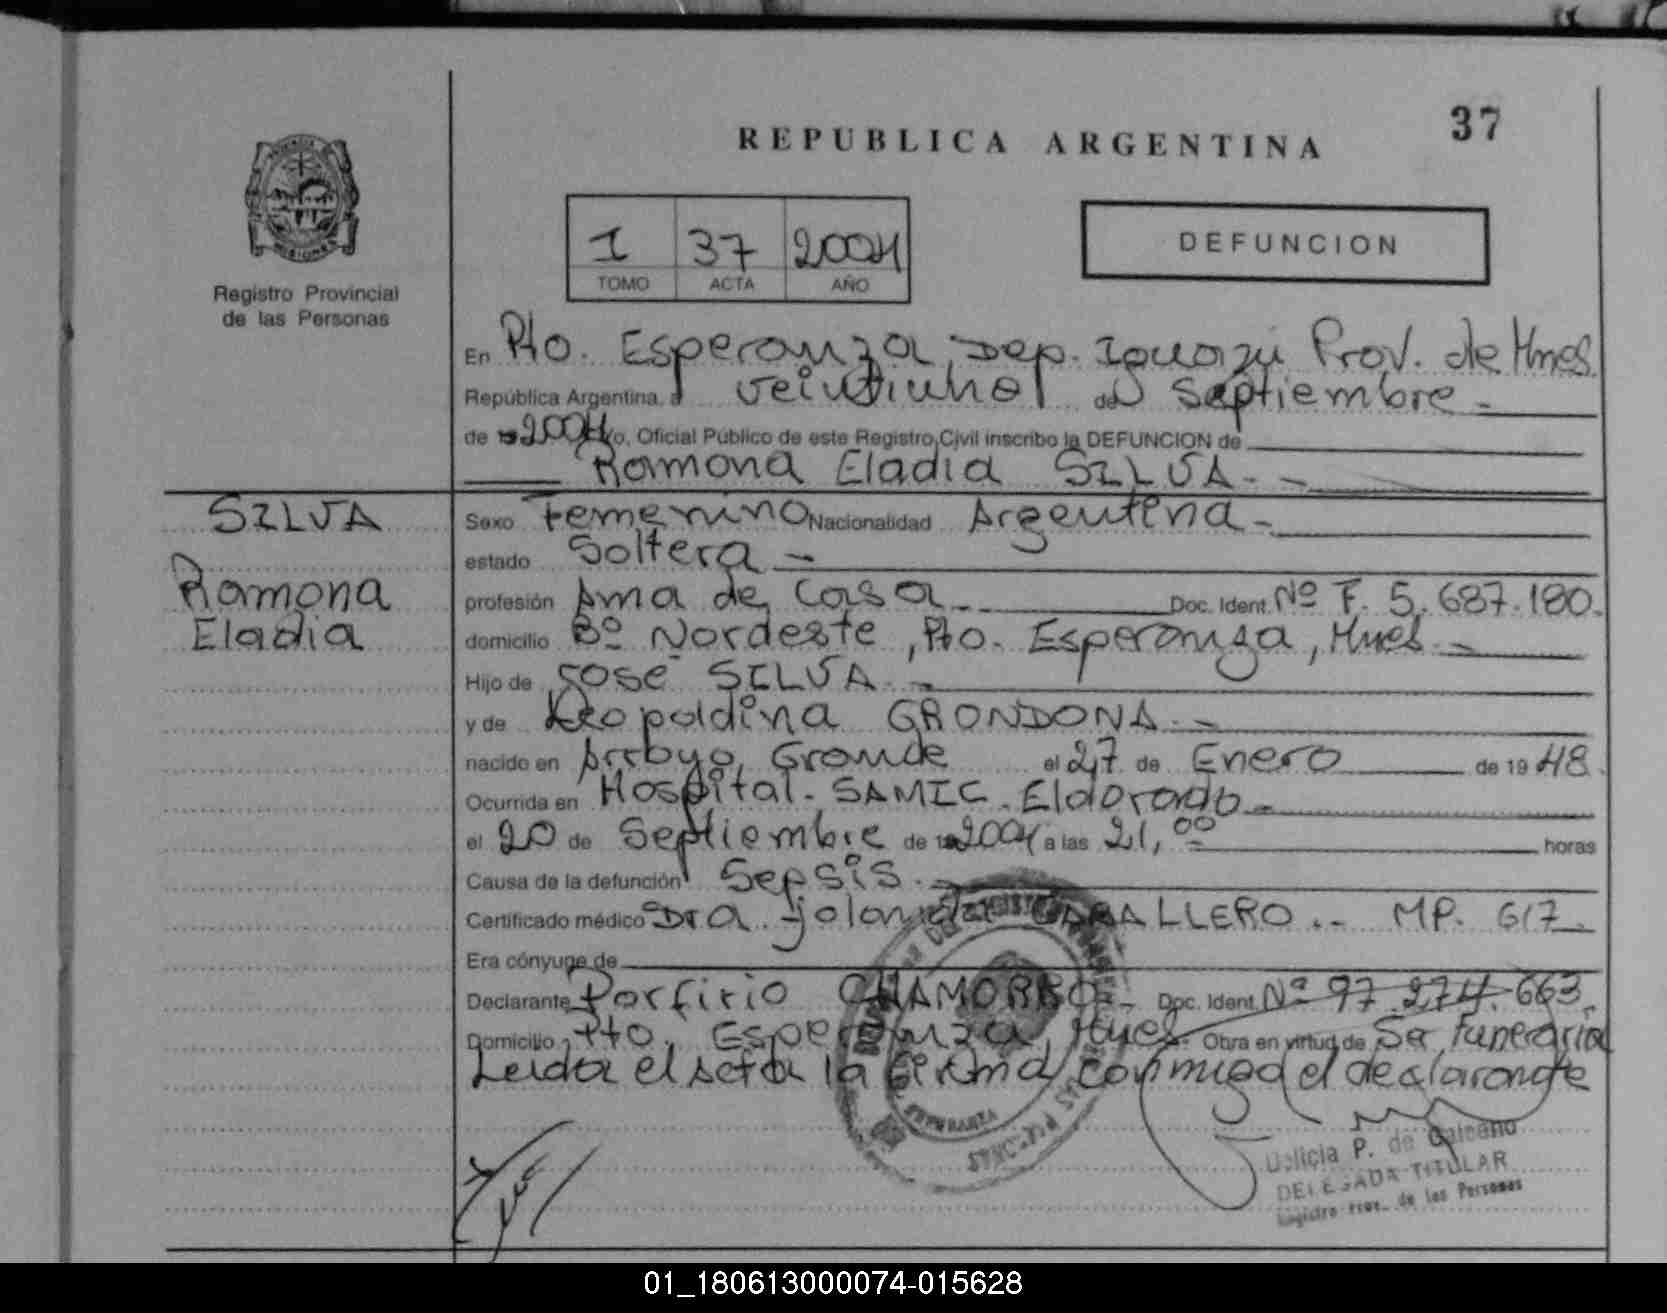 37
REPUBLICA ARGENTINA
I 37 2004
TOMO ACTA AÑO
DEFUNCION
Registro Provincial
de las Personas
En Pto. Esperanza, Dep. Iguazú Prov. de Mnes.
República Argentina, a veintiuno de Septiembre -
de 2004 yo, Oficial Público de este Registro Civil inscribo la DEFUNCION de
Ramona Eladia SILVA. -
SILVA
Ramona
Eladia
Sexo Femenino Nacionalidad Argentina -
estado Soltera -
profesión Ama de Casa - Doc. Ident. Nº F. 5.687.180.
domicilio Bº Nordeste, Pto. Esperanza, Mnes. -
Hijo de José SILVA. -
y de Leopoldina GRONDONA. -
nacido en Arroyo Grande el 27 de Enero de 1948.
Ocurrida en Hospital - SAMIC - Eldorado -
el 20 de Septiembre de 2004 a las 21,00 horas
Causa de la defunción Sepsis. -
Certificado médico Dra. Jolanda CABALLERO. - MP. 617
Era cónyuge de
Declarante Porfirio CHAMORRO - Doc. Ident. Nº 97.274.663.
Domicilio Pto. Esperanza, Mnes. Obra en virtud de Ser Funeraria
Leida el acta la firma conmigo el declarante
P. de Galeano
DELEGADA TITULAR
Registro Prov. de las Personas
01_180613000074-015628